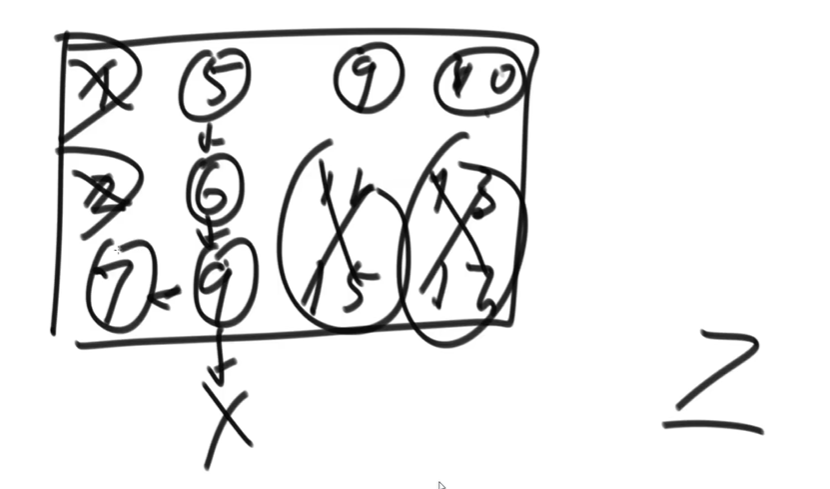 1 5 9 10
2 6 11 13
7 9 15 12
X
Z